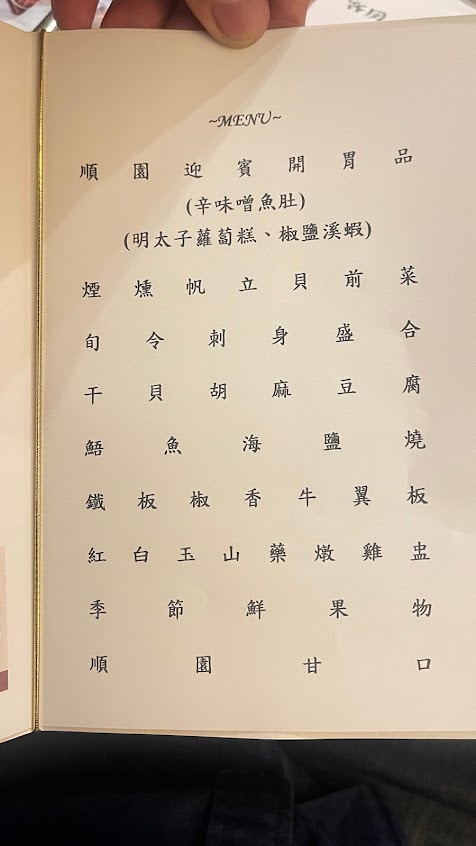 ~MENU~
順園迎賓開胃品
(辛味噌魚肚)
(明太子蘿蔔糕、椒鹽溪蝦)
煙燻帆立貝前菜
旬令刺身盛合
干貝胡麻豆腐
鯃魚海鹽燒
鐵板椒香牛翼板
紅白玉山藥燉雞盅
季節鮮果物
順園甘口